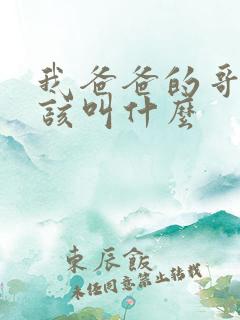 我爸爸的哥
该叫什麽
東辰飯
未经同意禁止转载